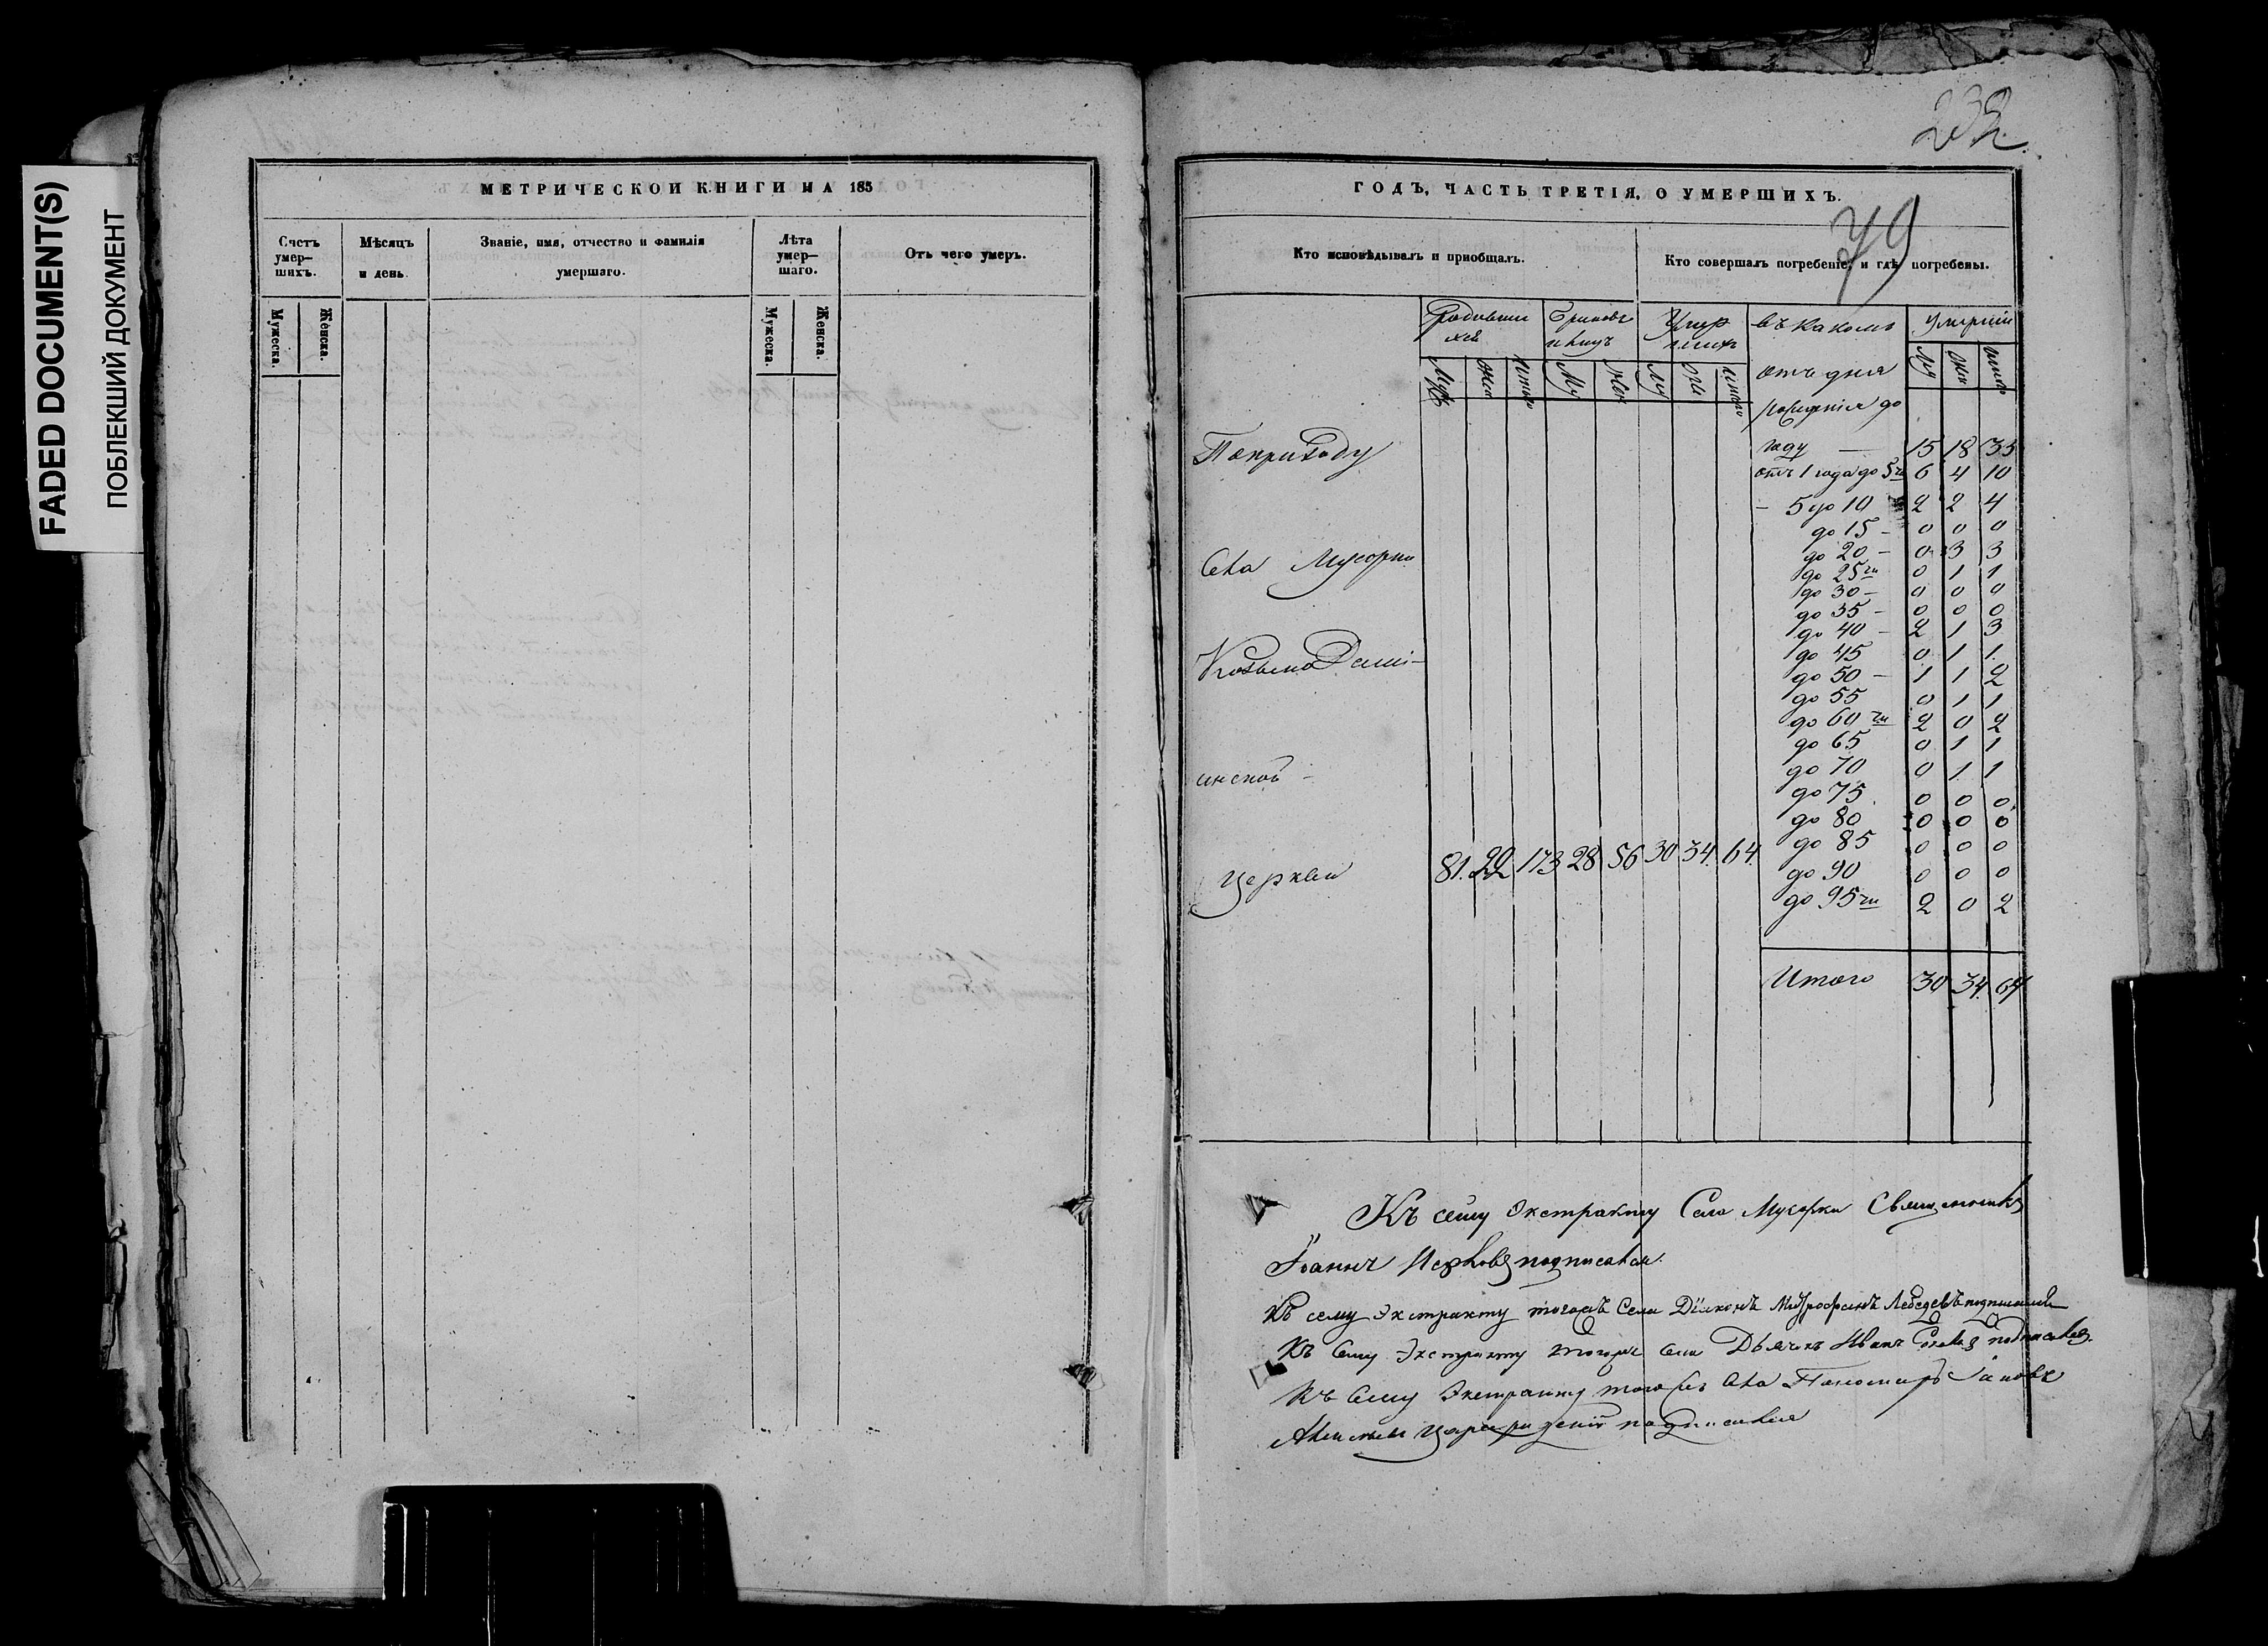 FADED DOCUMENT(S)
ПОБЛЕКШИЙ ДОКУМЕНТ
МЕТРИЧЕСКОЙ КНИГИ НА 185
Счетъ умер—шихъ.
Мужеска.
Женска.
Мѣсяцъ и день.
Званіе, имя, отчество и фамилія умершаго.
Лѣта умер—шаго.
Мужеска.
Женска.
Отъ чего умеръ.
232
ГОДЪ, ЧАСТЬ ТРЕТІЯ, О УМЕРШИХЪ.
79
Кто исповѣдывалъ и пріобщалъ.
Кто совершалъ погребеніе, и гдѣ погребены.
въ какомъ
отъ дня
рожденія до
году — 15 18 33
отъ 1 года до 5ти 6 4 10
— 5 до 10 2 2 4
до 15 — 0 0 0
до 20 — 0 3 3
до 25ти 0 1 1
до 30 — 0 0 0
до 35 — 0 0 0
до 40 — 2 1 3
до 45 0 1 1
до 50 — 1 1 2
до 55 0 1 1
до 60ти 2 0 2
до 65 0 1 1
до 70 0 1 1
до 75 0 0 0
до 80 0 0 0
до 85 0 0 0
до 90 0 0 0
до 95ти 2 0 2
Итого 30 34. 64
По приходу
Села Мусорки
Козьмо Дамі—
инской —
церкви 81. 173 28 56 30 34. 64.
Къ сему Экстракту Села Мусорки Священникъ
Іоаннъ подписался.
Къ сему Экстракту тогожъ Села Діяконъ Митрофанъ Лебедевъ подписался
Къ сему Экстракту тогоже села Дьячекъ Иванъ подписался.
Къ сему Экстракту тогожъ села Пономарь
подписался